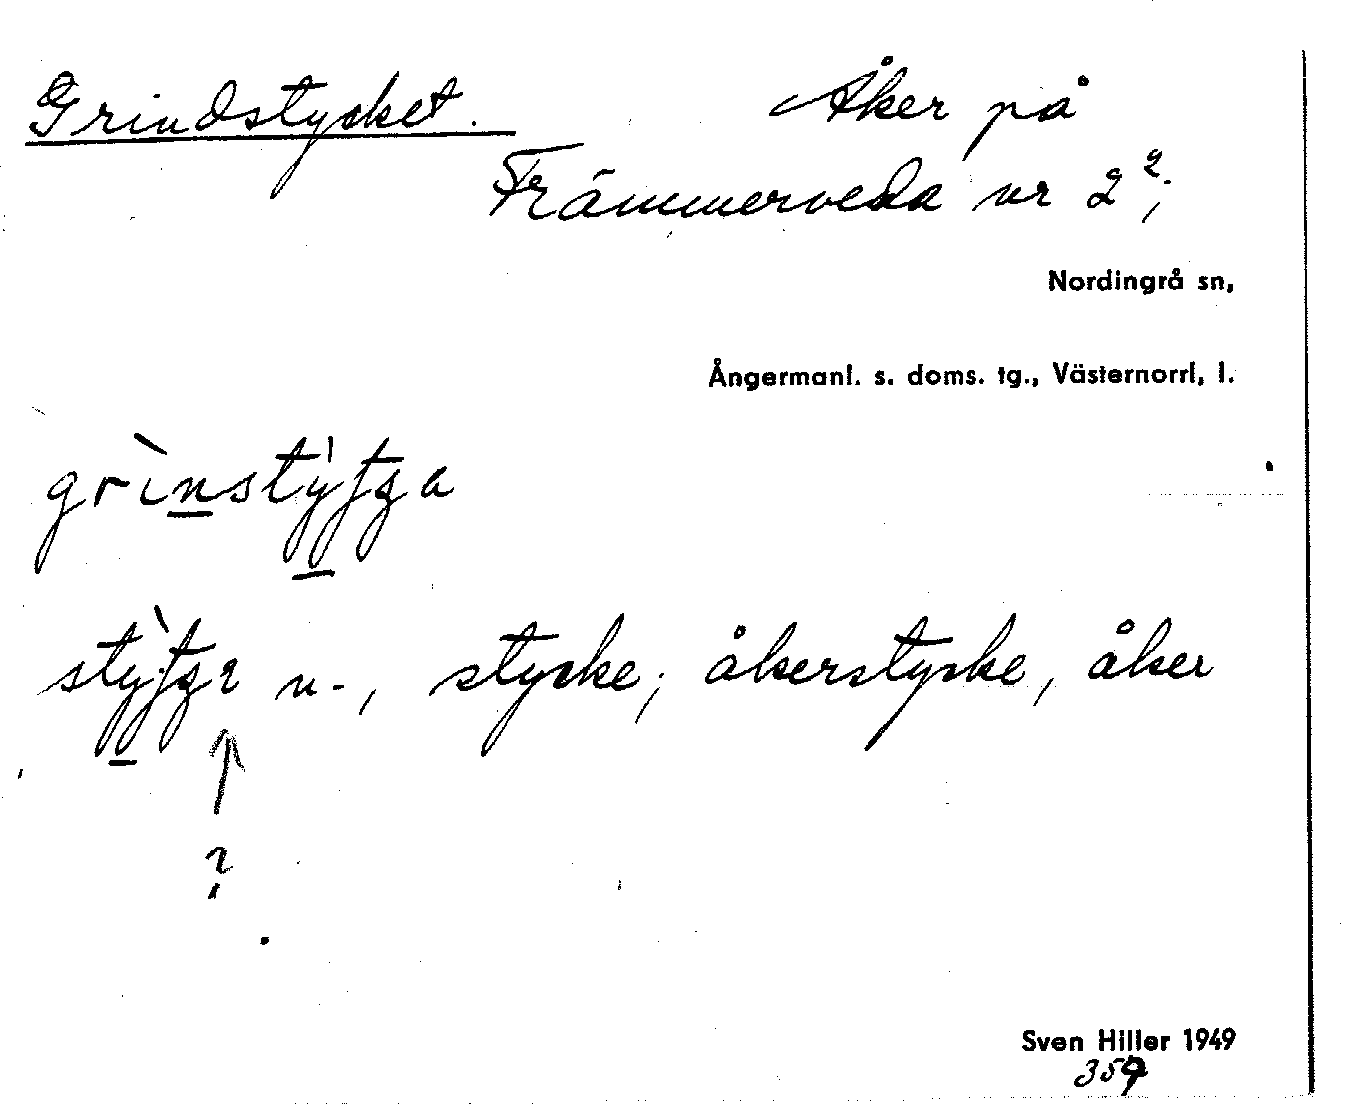 Grindstycket. Åker på
Främmerveda nr 2²;
Nordingrå sn,
Ångermanl. s. doms. tg., Västernorrl, l.
n-, stycke; åkerstycke, åker
?
Sven Hiller 1949
359